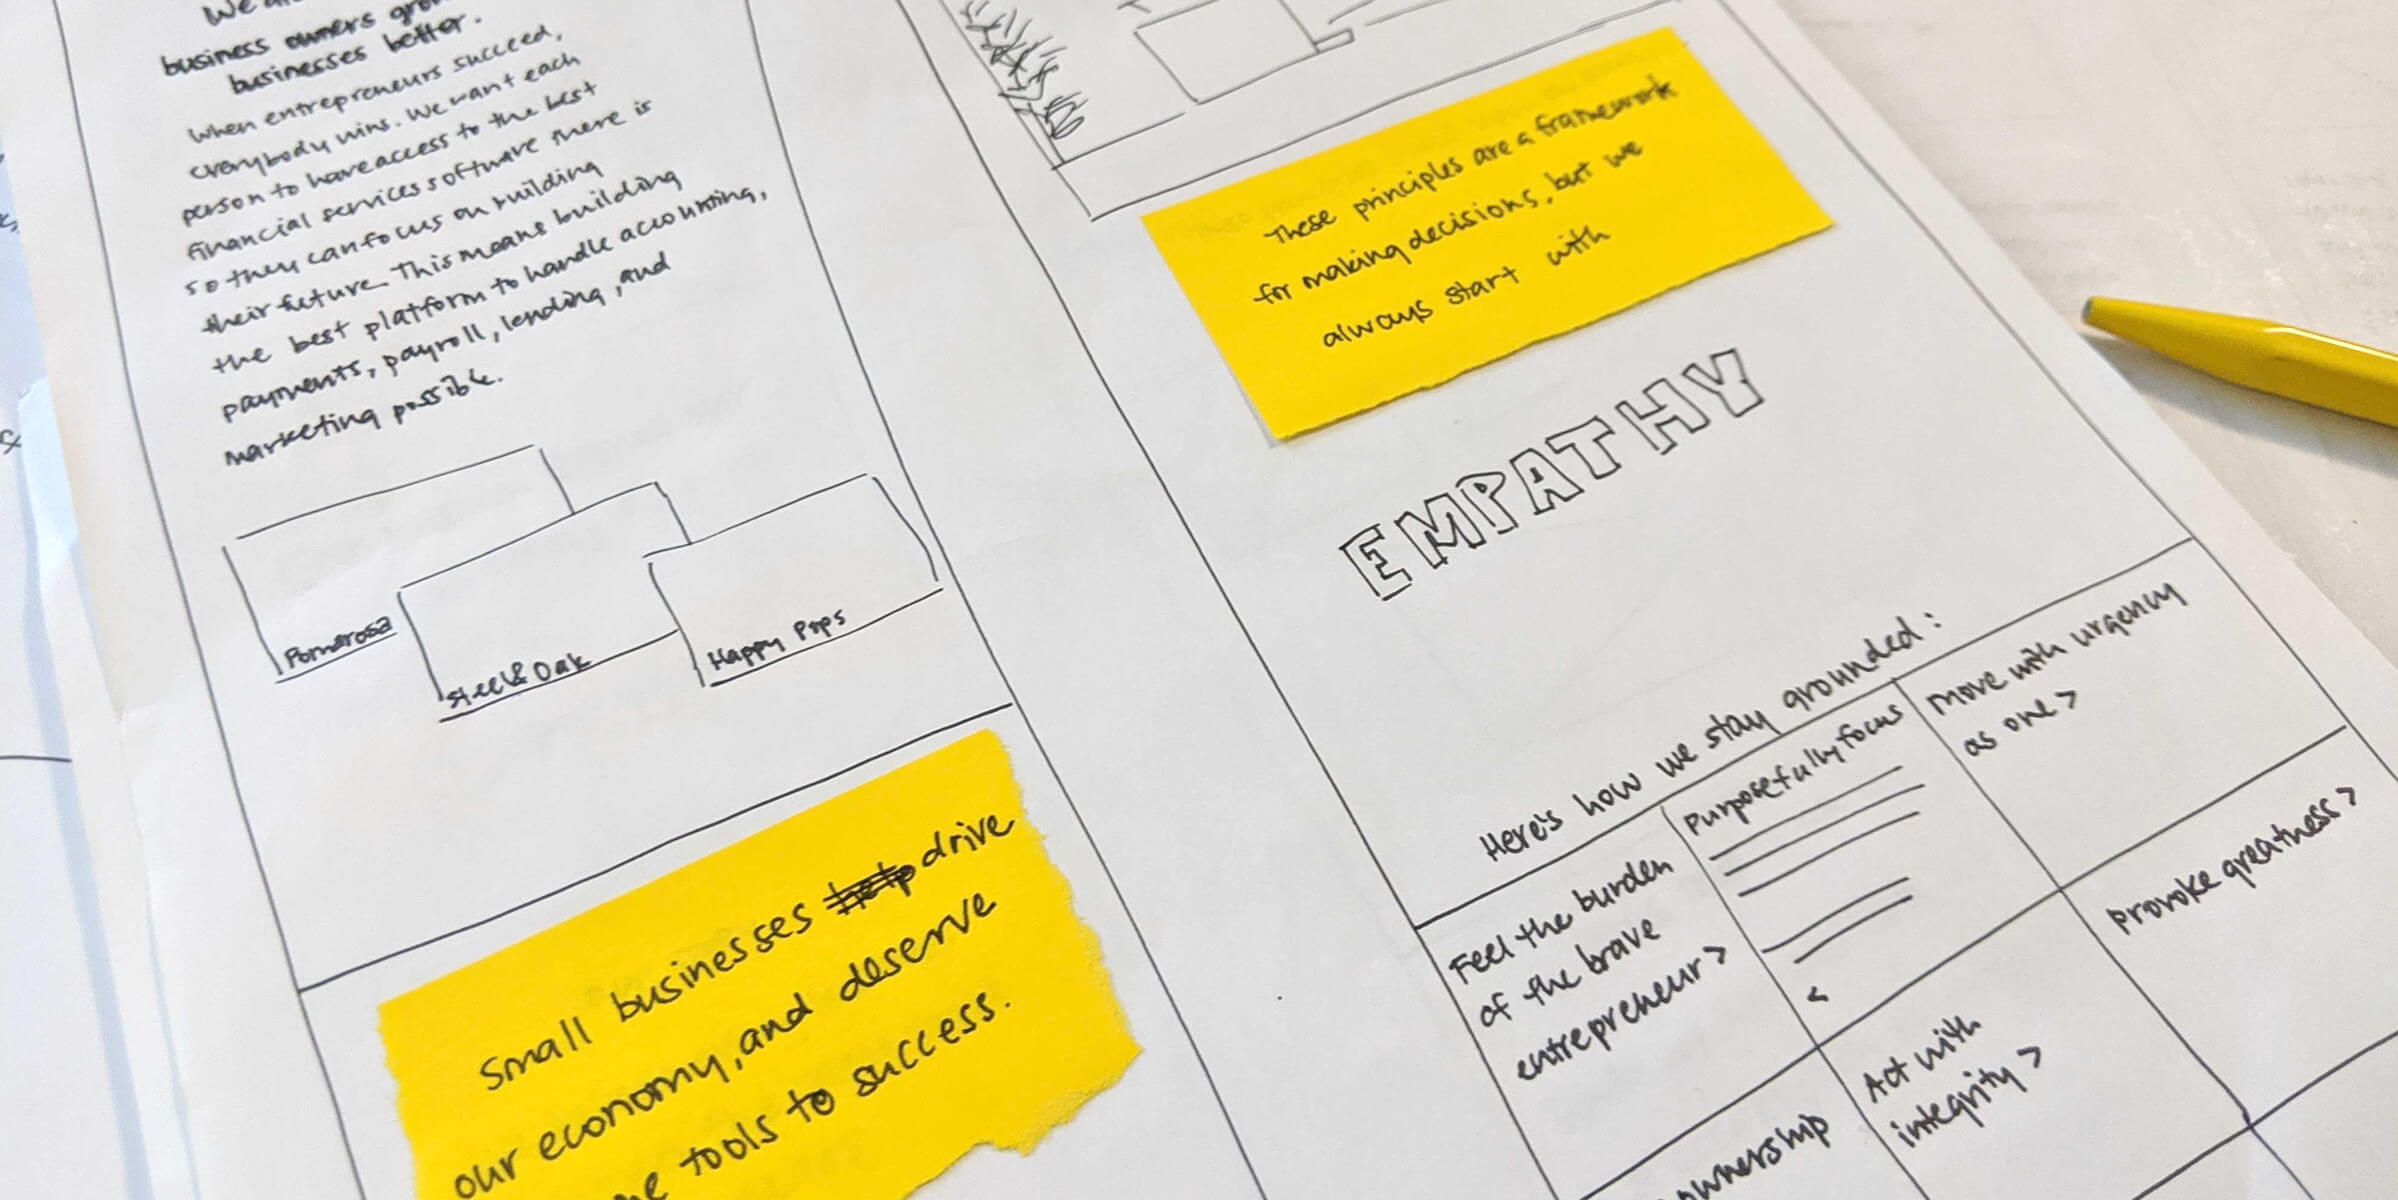 We
business owners grow
businesses better.
When entrepreneurs succeed,
everybody wins. We want each
person to have access to the best
financial services software there is
so they can focus on building
their future. This means building
the best platform to handle accounting,
payments, payroll, lending, and
marketing possible.
Pomarosa
Steel & Oak
Happy Pops
Small businesses help drive
our economy, and deserve
tools to success.
These principles are a framework
for making decisions, but we
always start with
EMPATHY
Here's how we stay grounded:
Feel the burden
of the brave
entrepreneur >
Purposefully focus
<
Move with urgency
as one >
ownership
Act with
integrity >
Provoke greatness >